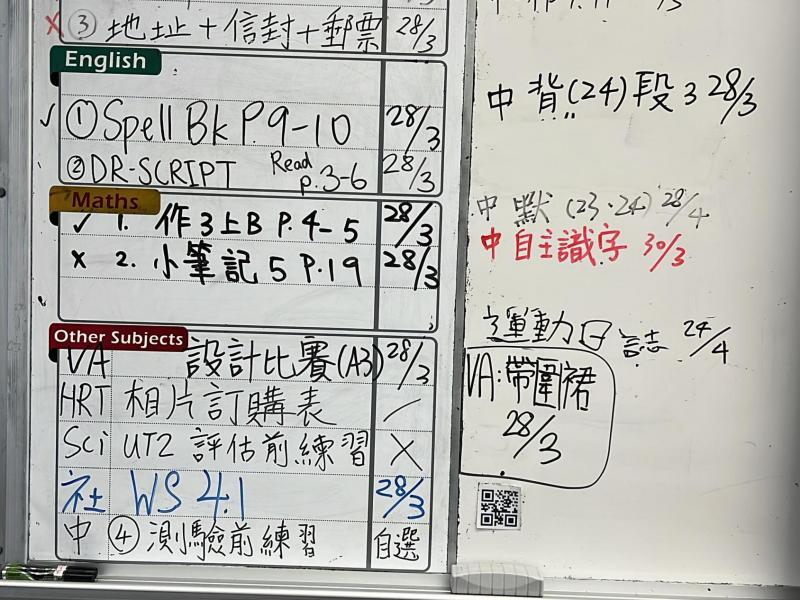 x ③ 地址+信封+郵票 28/3
English
✓ ① Spell Bk P.9-10 28/3
② DR-SCRIPT Read p.3-6 28/3
Maths
✓ 1. 作3上B P.4-5 28/3
x 2. 小筆記5 P.19 28/3
Other Subjects
VA 設計比賽(A3) 28/3
HRT 相片訂購表 /
Sci UT2 評估前練習 X
社 WS 4.1 28/3
中 ④ 測驗前練習 自選
中背(24)段3 28/3
中默(23.24) 28/4
中自主識字 30/3
運動日誌 24/4
VA:帶圍裙
28/3